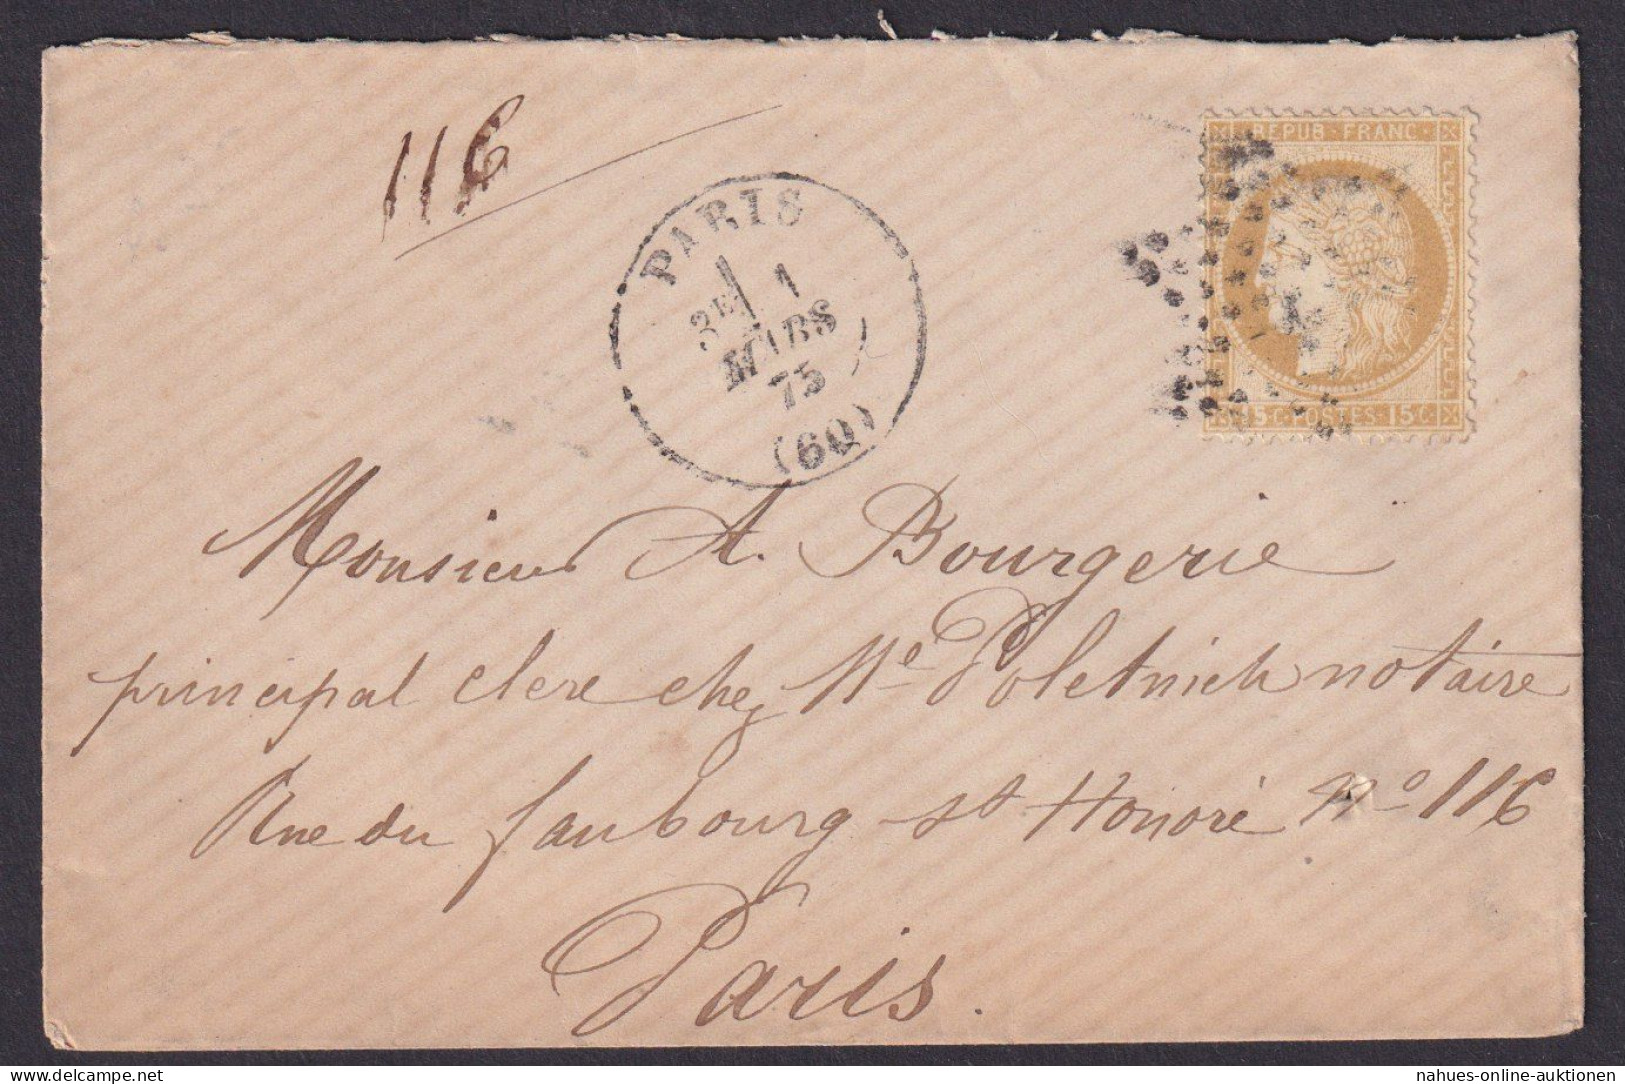 116
REPUB · FRANC ·
PARIS
3E 1
MARS
75
(60)
15c · POSTES · 15c
Monsieur A. Bourgerie
principal clerc chez Me Poletnich notaire
Rue du faubourg st Honoré No 116
Paris.
nahues-online-auktionen